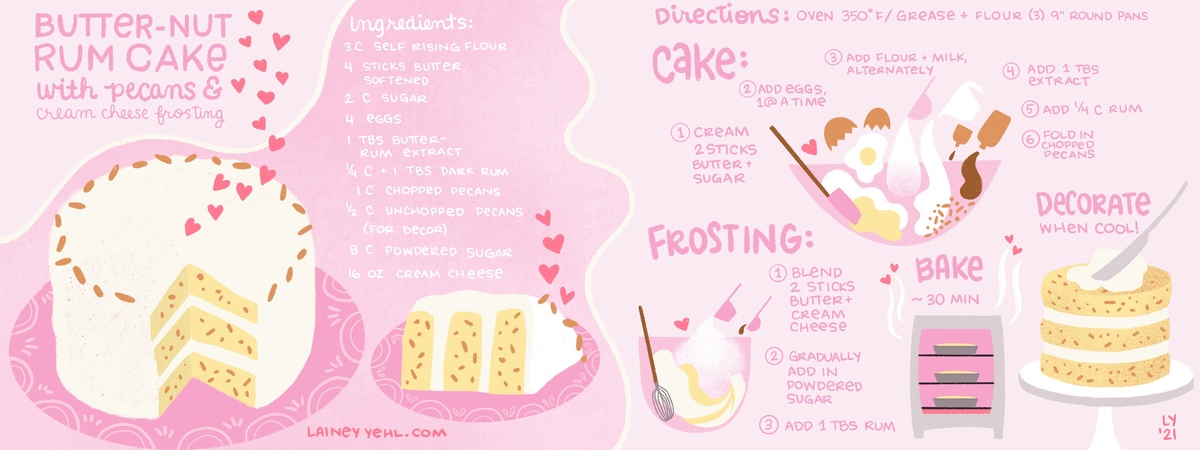 BUTTER-NUT
RUM CAKE
with pecans &
cream cheese frosting
Ingredients:
3 C SELF RISING FLOUR
4 STICKS BUTTER,
SOFTENED
2 C SUGAR
4 EGGS
1 TBS BUTTER-
RUM EXTRACT
1/4 C + 1 TBS DARK RUM
1 C CHOPPED PECANS
1/2 C UNCHOPPED PECANS
(FOR DECOR)
8 C POWDERED SUGAR
16 OZ CREAM CHEESE
LAINEYYEHL.COM
Directions: OVEN 350°F/ GREASE + FLOUR (3) 9" ROUND PANS
Cake:
① CREAM
2 STICKS
BUTTER +
SUGAR
② ADD EGGS,
1@ A TIME
③ ADD FLOUR + MILK,
ALTERNATELY
④ ADD 1 TBS
EXTRACT
⑤ ADD 1/4 C RUM
⑥ FOLD IN
CHOPPED
PECANS
FROSTING:
① BLEND
2 STICKS
BUTTER +
CREAM
CHEESE
② GRADUALLY
ADD IN
POWDERED
SUGAR
③ ADD 1 TBS RUM
BAKE
~ 30 MIN
DECORATE
WHEN COOL!
LY
'21